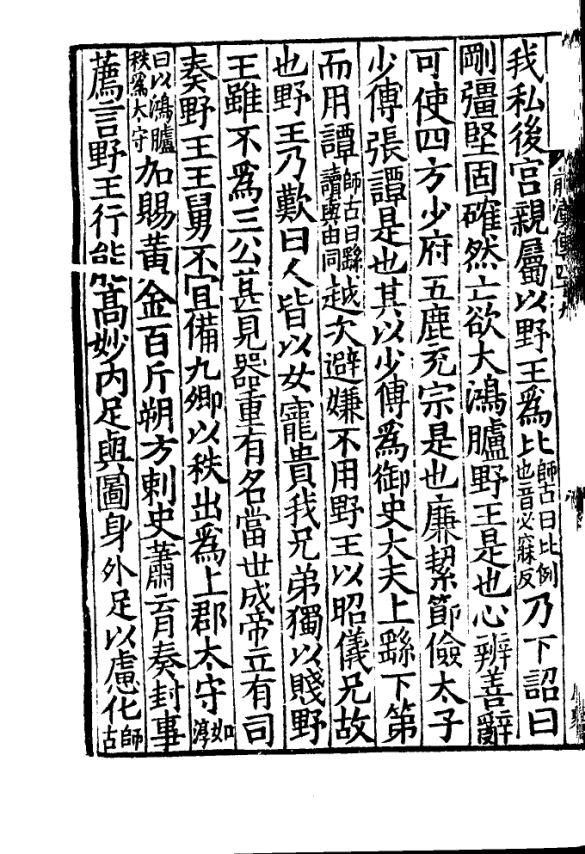 我私後宮親屬以野王爲比師古曰比例也音必寐反乃下詔曰
剛彊堅固確然亡欲大鴻臚野王是也心辨善辭
可使四方少府五鹿充宗是也廉絜節儉太子
少傅張譚是也其以少傅爲御史大夫上繇下第
而用譚師古曰繇讀與由同越次避嫌不用野王以昭儀兄故
也野王乃歎曰人皆以女寵貴我兄弟獨以賤野
王雖不爲三公甚見器重有名當世成帝立有司
奏野王王舅不宜備九卿以秩出爲上郡太守如淳
曰以鴻臚秩爲太守加賜黃金百斤朔方刺史蕭育奏封事
薦言野王行能髙妙内足與圖身外足以慮化師古